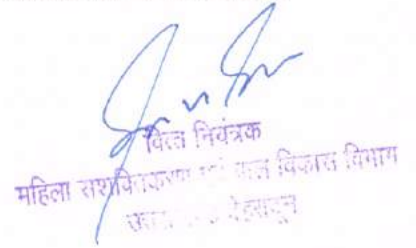 वित्त नियंत्रक
महिला सशक्तिकरण एवं बाल विकास विभाग
देहरादून